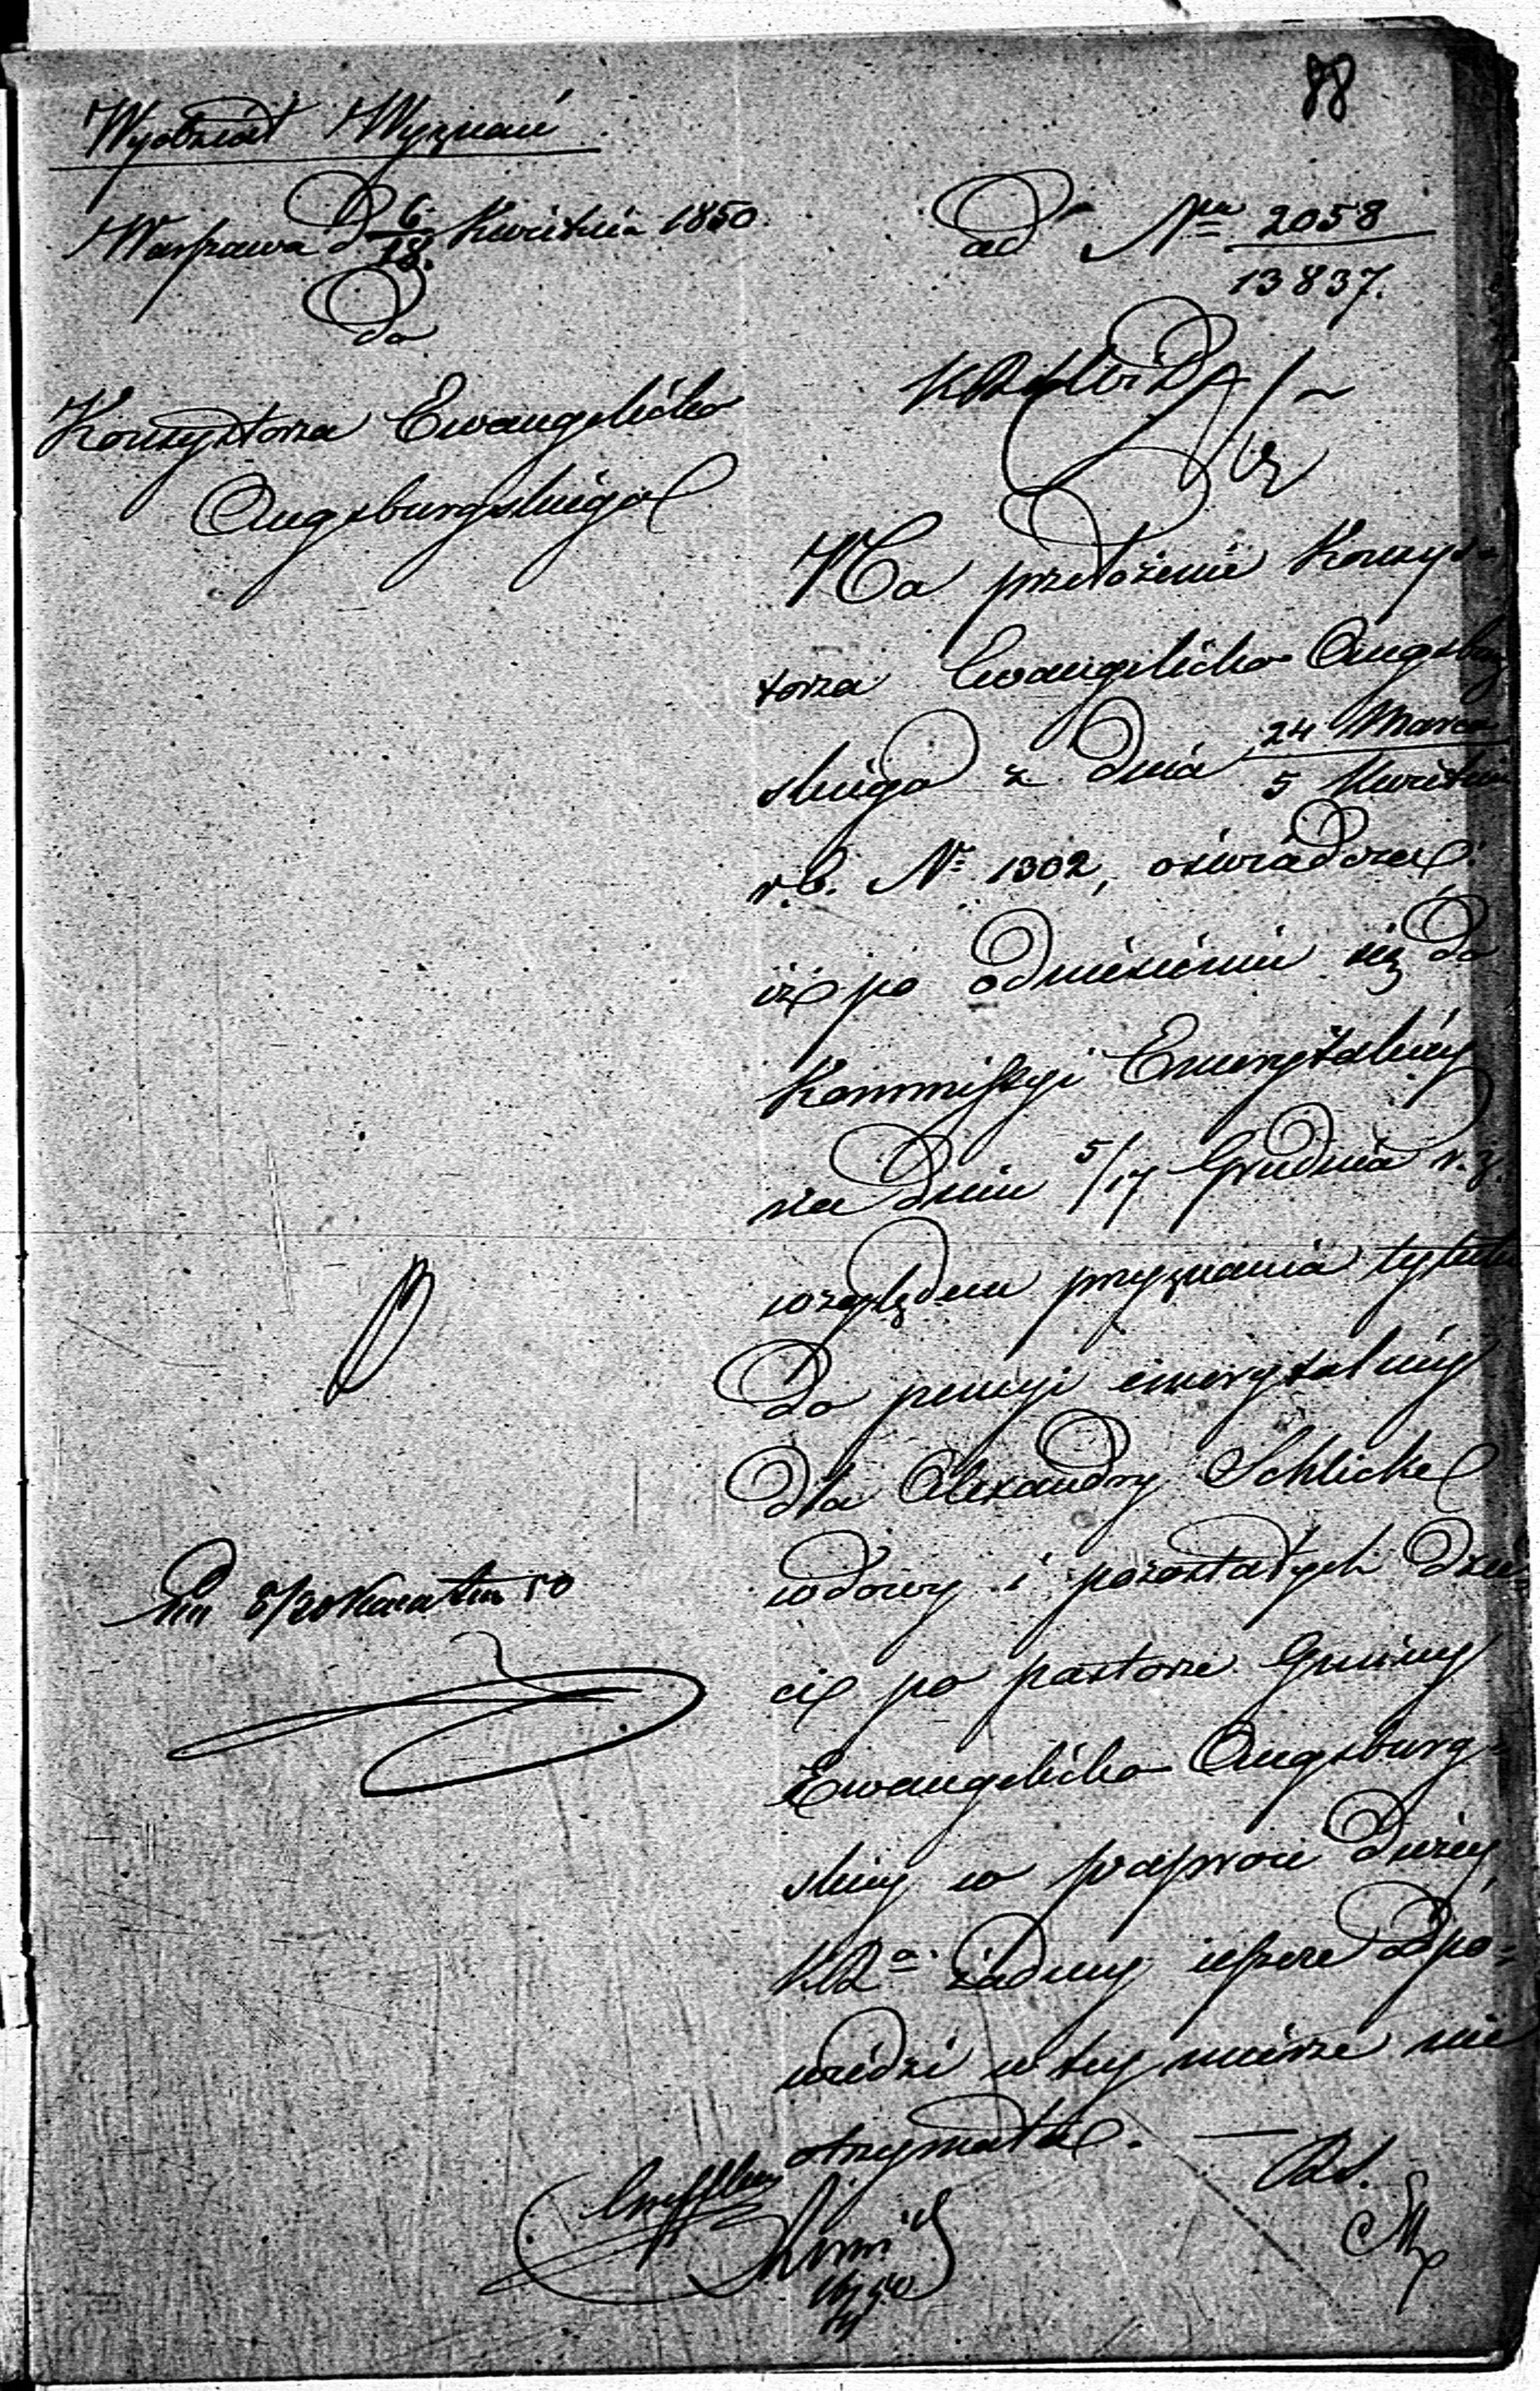 88
Wydział Wyznań
Warszawa d 6/18 Kwietnia 1850
do
Konsystorza Ewangelicko
Augsburgskiego
ad Nra 2058/13837.
Na przełożenie Konsys-
torza Ewangelicko Augsburg
skiego z dnia 24 Marca/5 Kwietnia
r.b. Nr 1302, oświadcza
iż po odniesieniu się do
Kommissyi Emerytalnéy
na dniu 5/17 Grudnia r.z.
względem przyznania tytułu
do pensyi emerytalnéy
dla Alexandry Schlicke
wdowy i pozostałych dzie-
ci po pastorze Gminy
Ewangelicko Augsburg-
skiéy w Paproci Dużéy,
KRa żadnéy ieszcze odpo-
wiedzi w téy mierze nie
otrzymała. —
8/20 Kwietnia 50